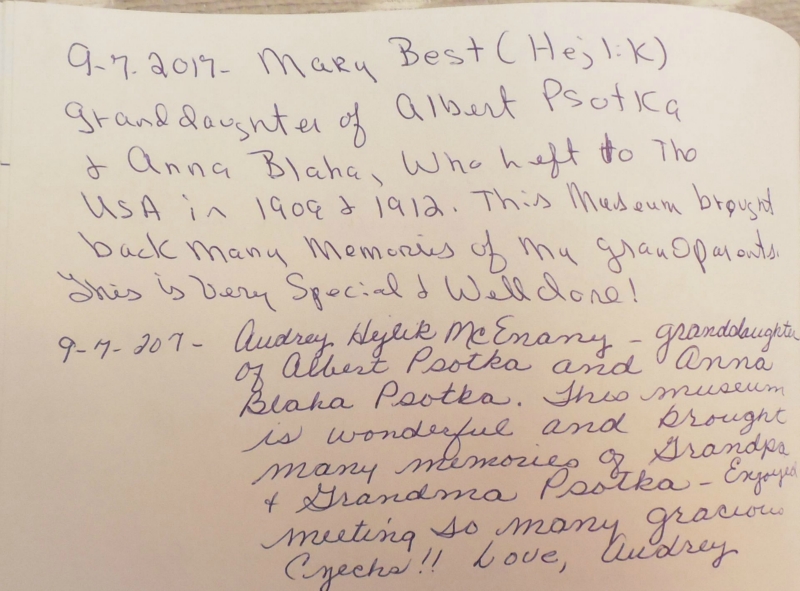 9-7.2017- Mary Best (Hejlik)
granddaughter of Albert Psotka
& Anna Blaha, Who left to The
USA in 1909 & 1912. This Museum brought
back Many Memories of My grandparents.
This is Very Special & Well done!
9-7-207- Audrey Hejlik McEnany - granddaughter
of Albert Psotka and Anna
Blaha Psotka. This museum
is wonderful and brought
many memories of Grandpa
& Grandma Psotka - Enjoyed
meeting so many gracious
Czechs!! Love, Audrey